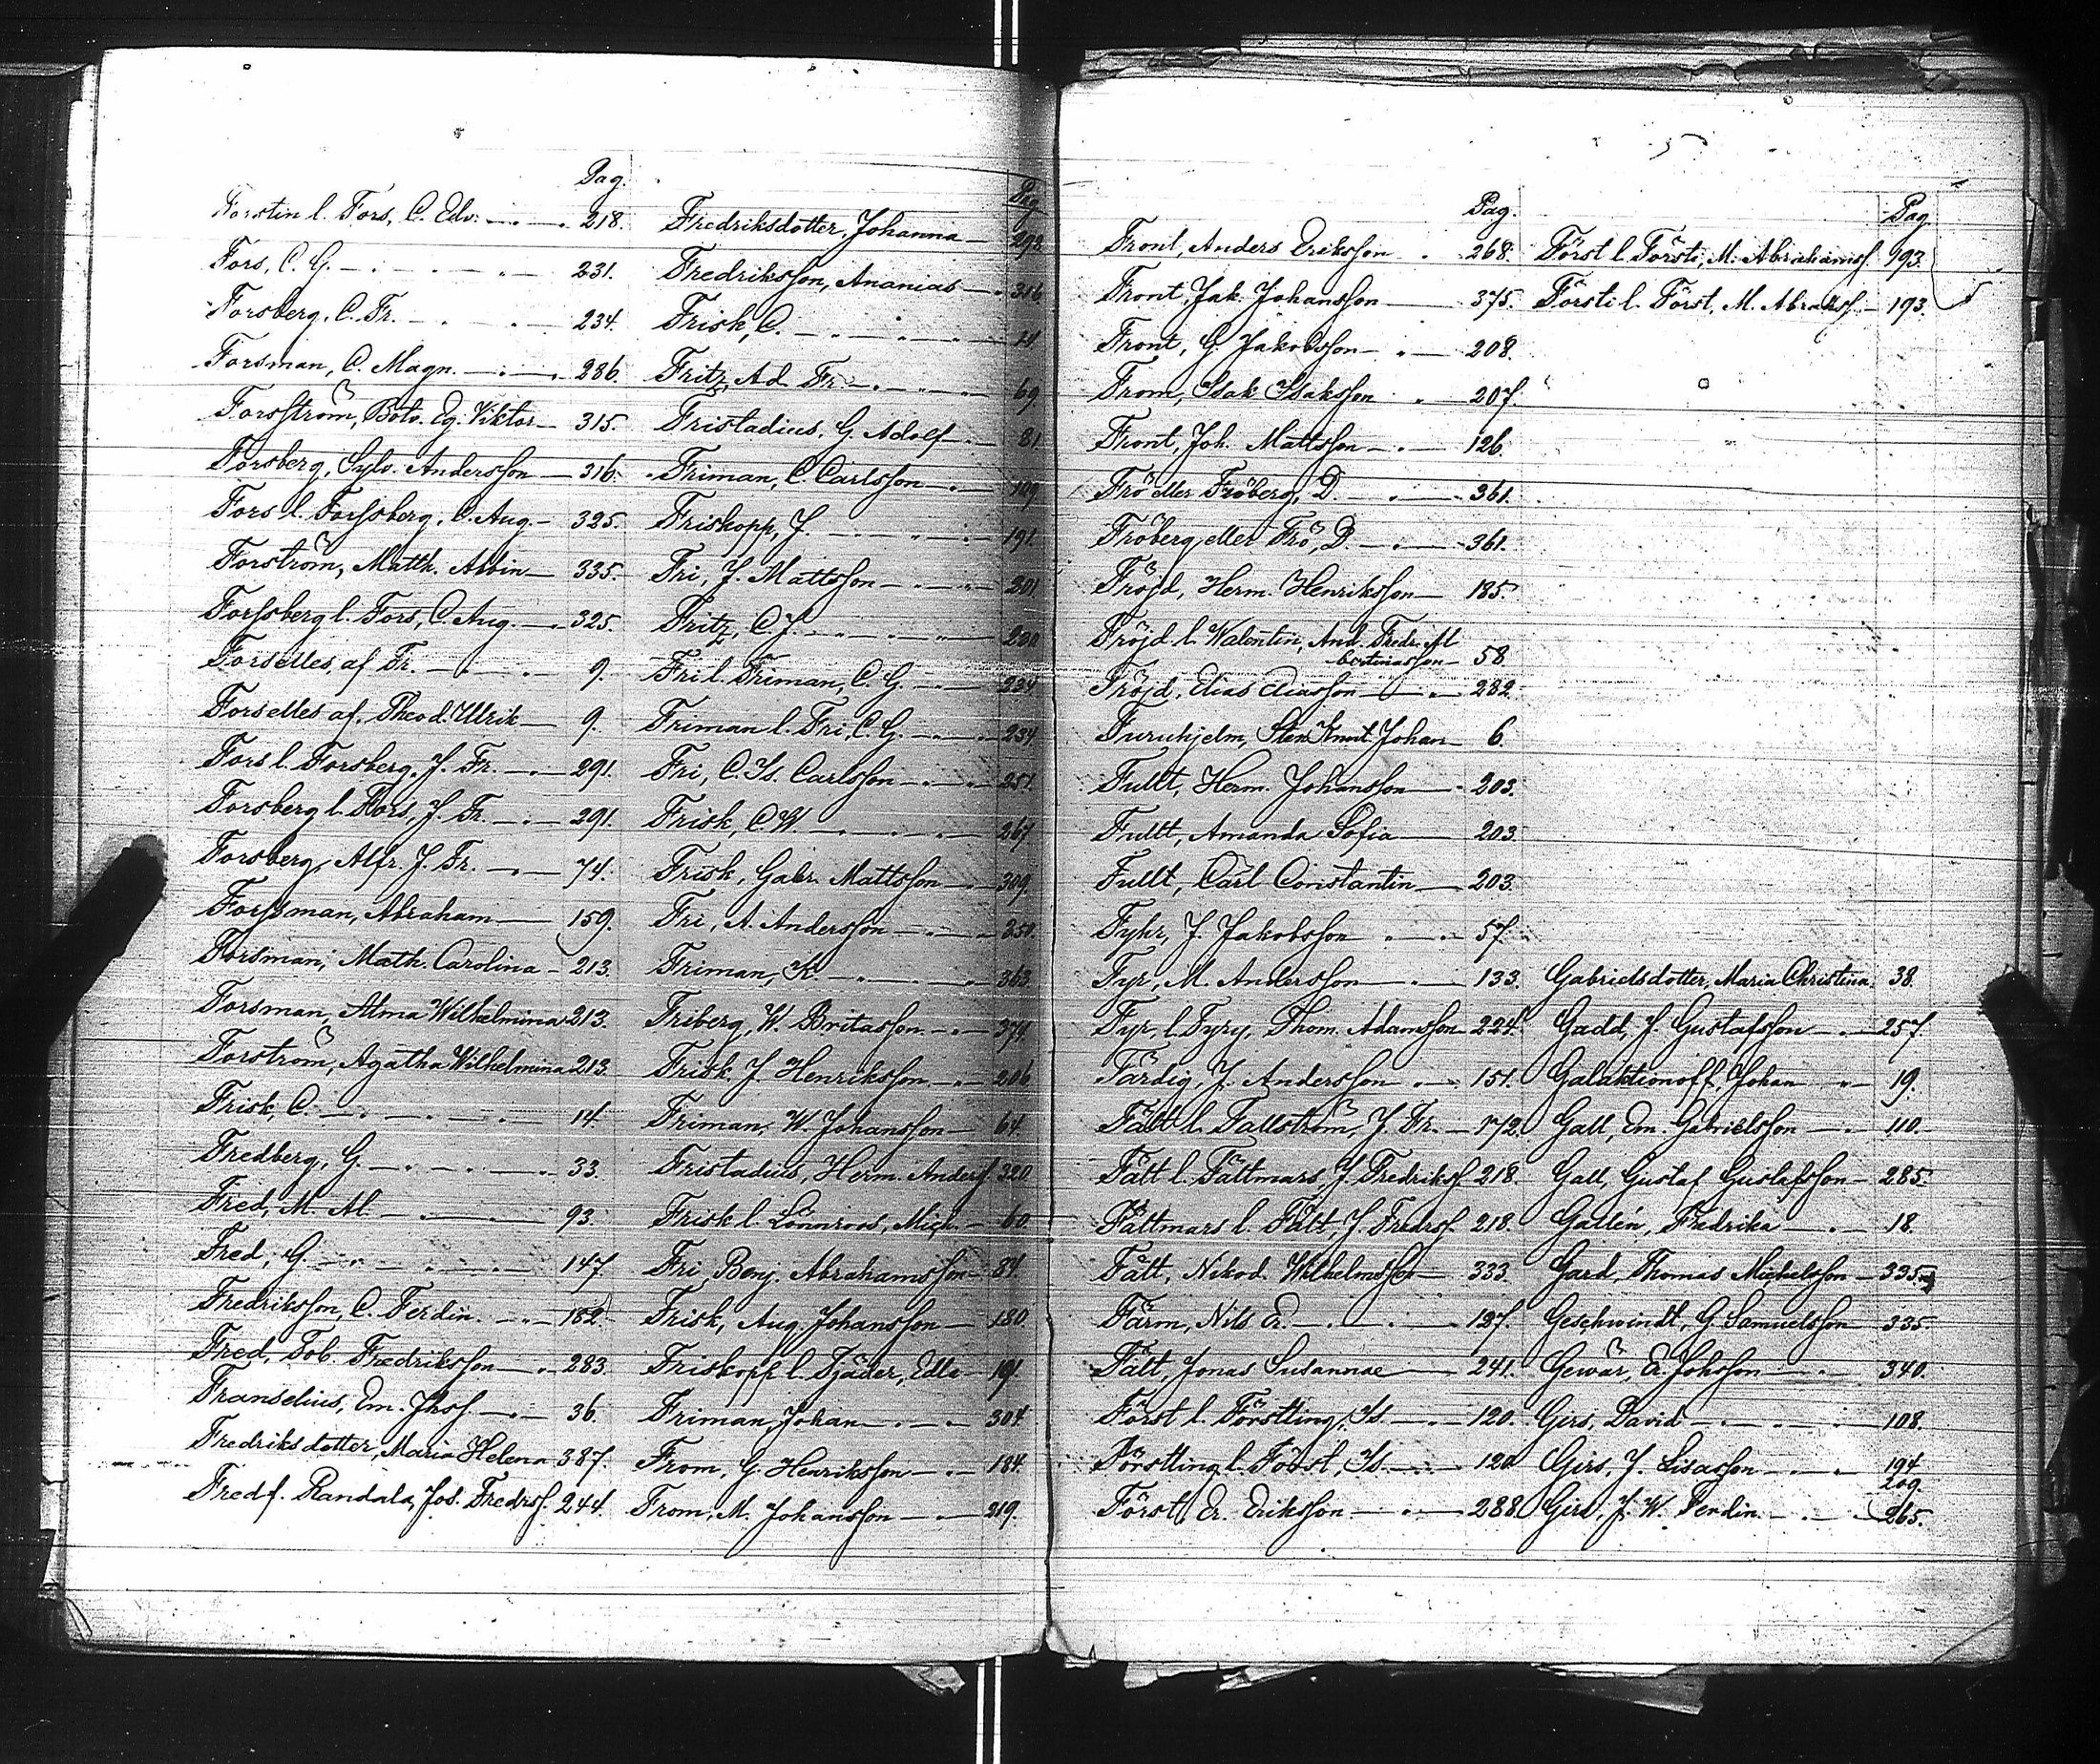 Pag.
Forstin l. Fors, C. Edv. 218.
Fors, C. G. 231.
Forsberg, C. Fr. 234.
Forsman, C. Magn. 286.
Forsström, Botv. Eg. Viktor 315.
Forsberg, Sylv. Andersson 316.
Fors l. Forssberg, C. Aug. 325.
Forström, Matth. Alvin 335.
Forssberg l. Fors, C. Aug. 325.
Forselles, af Fr. 9.
Forselles af, Theod. Ulrik 9.
Fors l. Forsberg, J. Fr. 291.
Forsberg l. Fors, J. Fr. 291.
Forsberg, Alfr. J. Fr. 74.
Forssman, Abraham 159.
Forsman, Math. Carolina 213.
Forsman, Alma Wilhelmina 213.
Forström, Agatha Wilhelmina 213.
Frisk, C. 14.
Fredberg, G. 33.
Fred, M. Al. 93.
Fred, G. 147.
Fredriksson, C. Ferdin. 182.
Fred, Tob. Fredriksson 283.
Franselius, Em. Jhsf. 36.
Fredriksdotter, Maria Helena 387.
Fredf. Randala, Jos. Fredrsf. 244.
Pag
Fredriksdotter, Johanna 298
Fredriksson, Ananias 316
Frisk, C. 14
Fritz, Ad. Fr. 69.
Fristadius, G. Adolf 81
Friman, C. Carlsson 109
Friskopp, J. 191
Fri, J. Mattsson 201
Fritz, C. J. 200
Fri l. Friman, C. G. 234
Friman l. Fri, C. G. 234
Fri, C. Is. Carlsson 251.
Frisk, C. W. 267
Frisk, Gabr. Mattsson 309
Fri, A. Andersson 350.
Friman, K. 363
Friberg, W. Britasson 374
Frisk, J. Henriksson 206
Friman, W. Johansson 64
Fristadius, Herm. Andersf. 320
Frisk l. Lönnroos, Mich. 60
Fri, Benj. Abrahamsson 84.
Frisk, Aug. Johansson 180.
Friskopp l. Tjäder, Edla 191.
Friman, Johan 304
From, G. Henriksson 184.
From, M. Johansson 219.
Pag.
Front, Anders Eriksson 268.
Front, Jak. Johansson 375.
Front, G. Jakobsson 208.
From, Isak Isaksson 207.
Front, Joh. Mattsson 126.
Frö eller Fröberg, D. 361.
Fröberg eller Frö, D. 361.
Fröjd, Herm. Henriksson 185
Fröjd l. Walentin, And. Fredr. Al
bertinasson 58
Fröjd, Elias Eliasson 282.
Furuhjelm, Sten Knut Johan 6.
Fullt, Herm. Johansson 203.
Fullt, Amanda Sofia 203.
Fullt, Carl Constantin 203.
Fyhr, J. Jakobsson 57.
Fyr, M. Andersson 133.
Fyr, l. Fyry, Thom. Adamsson 224.
Färdig, J. Andersson 151.
Fält l. Fallström, J. Fr. 172.
Fält l. Fältmars, J. Fredriksf. 218.
Fältmars l. Fält, J. Fredrsf. 218.
Fält, Nikod. Wilhelmsson 333.
Färm, Nils Er. 127.
Fält, Jonas Susannae 241.
Först l. Förstling, Is. 120.
Förstling l. Först, Is. 120
Först, Er. Eriksson 288.
Pag
Först l. Försti, M. Abrahamsf. 193.
Försti l. Först, M. Abrahsf. 193.
Gabrielsdotter, Maria Christina 38.
Gadd, J. Gustafsson 257.
Galaktionoff, Johan 19.
Gall, Em. Gabrielsson 110.
Gall, Gustaf Gustafsson 285.
Gallén, Fredrika 18.
Gard, Thomas Michelsson 335
Geschwindt, G. Samuelsson 335
Gewär, E. Johsson 340.
Girs, David 108.
Girs, J. Lisasson 194
209.
Girs, J. W. Ferdin. 265.